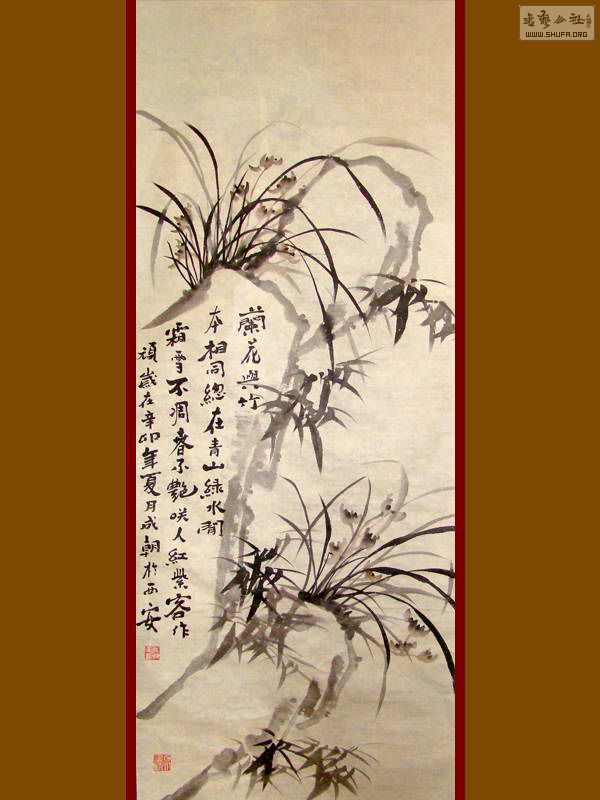 蘭花與竹
本相同總在青山綠水間
霜雪不凋春不艷咲人紅紫客作
頑歲在辛卯年夏月成朝於西安
書藝公社
WWW.SHUFA.ORG